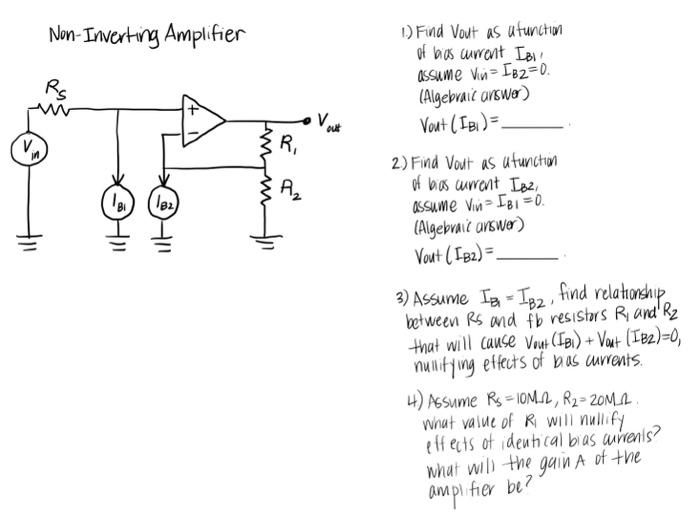 Non-Inverting Amplifier
Rs
Vin
IB1
IB2
+
-
Vout
R1
R2
1.) Find Vout as a function
of bias current IB1,
assume Vin = IB2=0.
(Algebraic answer)
Vout (IB1) = ______.
2.) Find Vout as a function
of bias current IB2,
assume Vin = IB1 = 0.
(Algebraic answer)
Vout (IB2) = ______.
3) Assume IB1 = IB2, find relationship
between Rs and fb resistors R1 and R2
that will cause Vout (IB1) + Vout (IB2)=0,
nullifying effects of bias currents.
4) Assume Rs = 10MΩ, R2 = 20MΩ.
what value of R1 will nullify
effects of identical bias currents?
what will the gain A of the
amplifier be?